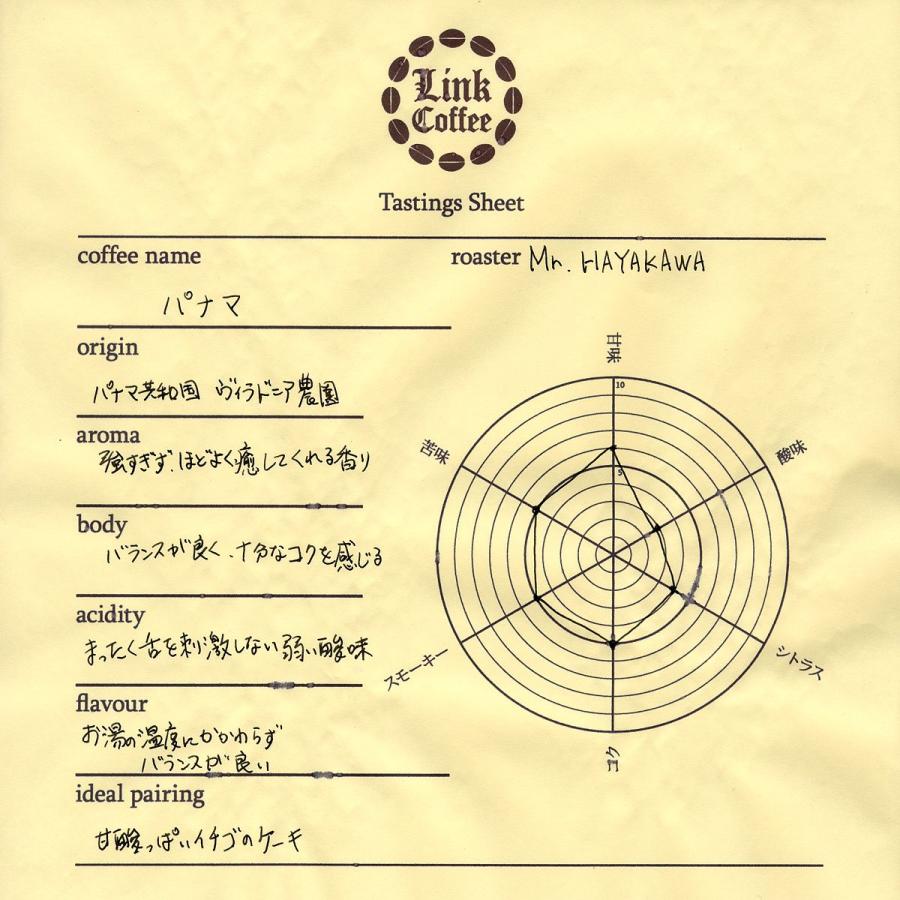 Link
Coffee
Tastings Sheet
coffee name
roaster Mr. HAYAKAWA
パナマ
origin
パナマ共和国 ヴィラドニア農園
aroma
強すぎず、ほどよく癒してくれる香り
body
バランスが良く、十分なコクを感じる
acidity
まったく舌を刺激しない弱い酸味
flavour
お湯の温度にかかわらず
バランスが良い
ideal pairing
甘酸っぱいイチゴのケーキ
甘味
10
酸味
苦味
5
スモーキー
シトラス
コク